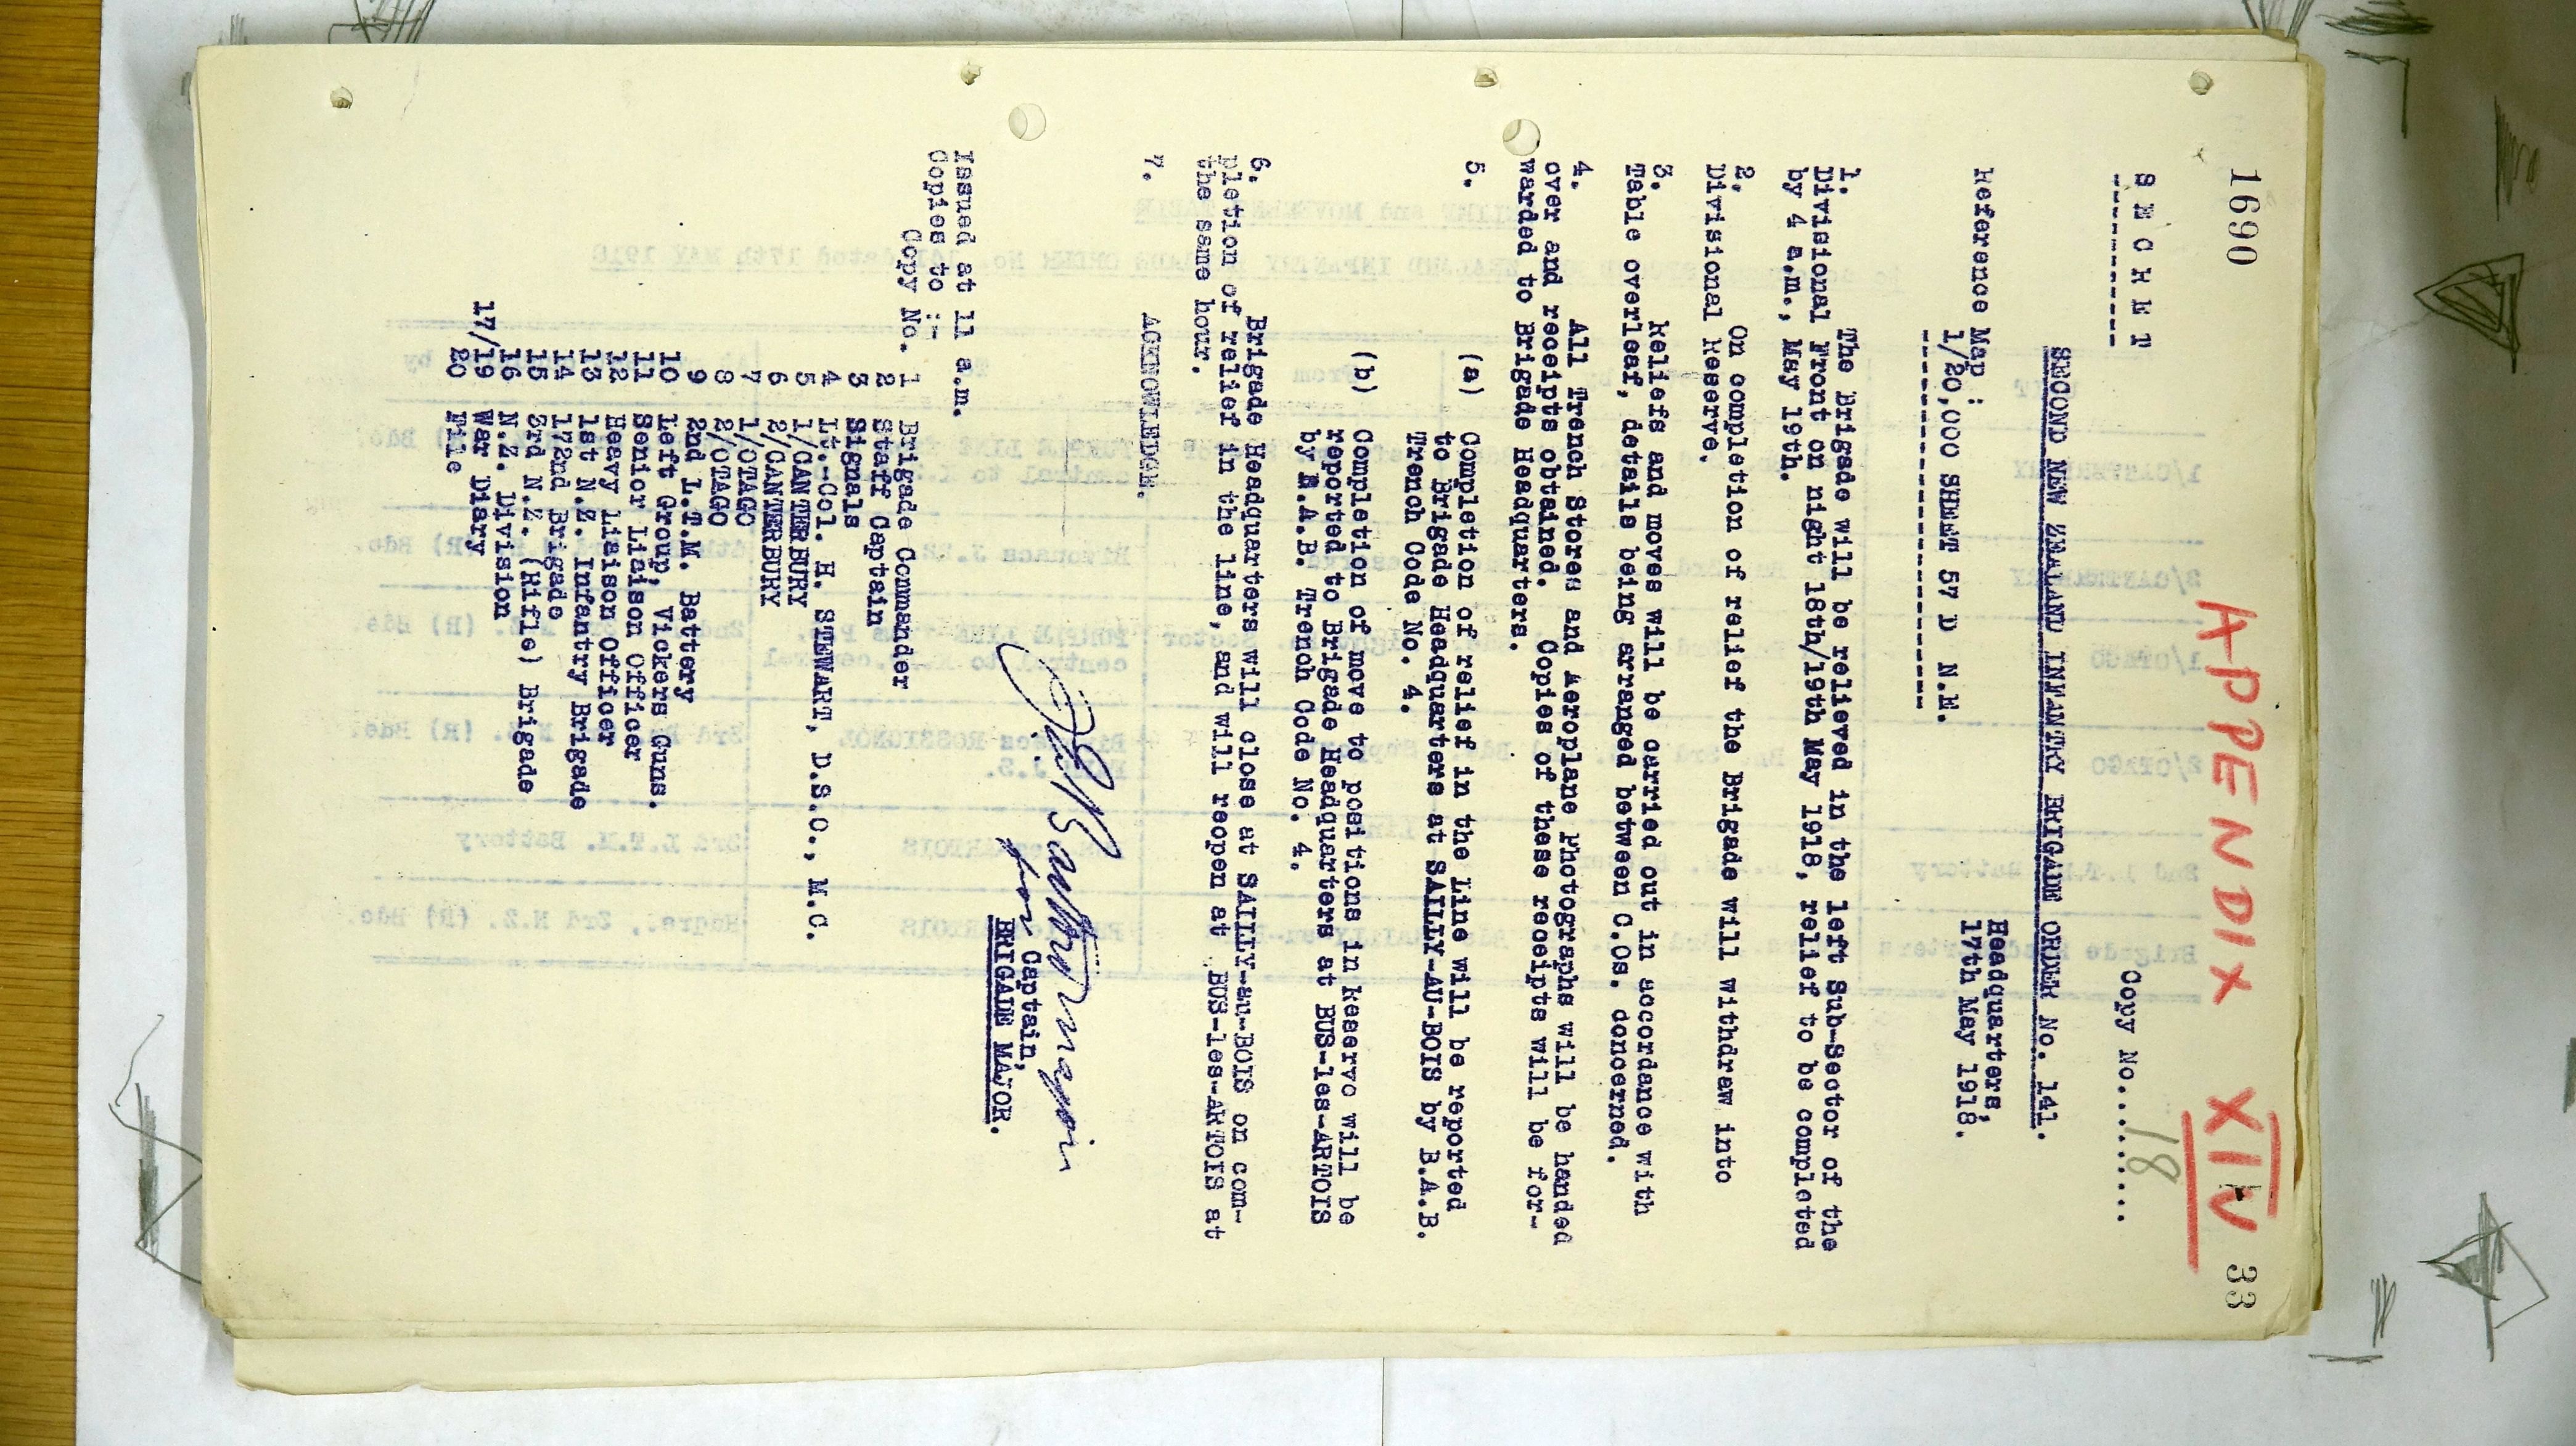 1690
33
APPENDIX XIV
S E C R E T
Copy No. 18
SECOND NEW ZEALAND INFANTRY BRIGADE ORDER No. 141.
Headquarters,
17th May 1918.
Reference Map :
1/20,000 SHEET 57 D N.E.
1. The Brigade will be relieved in the left Sub-Sector of the
Divisional Front on night 18th/19th May 1918, relief to be completed
by 4 a.m., May 19th.
2. On completion of relief the Brigade will withdraw into
Divisional Reserve.
3. Reliefs and moves will be carried out in accordance with
Table overleaf, details being arranged between C.Os. concerned.
4. All Trench Stores and Aeroplane Photographs will be handed
over and receipts obtained. Copies of these receipts will be for-
warded to Brigade Headquarters.
5. (a) Completion of relief in the Line will be reported
to Brigade Headquarters at SAILLY-AU-BOIS by B.A.B.
Trench Code No. 4.
(b) Completion of move to positions in Reserve will be
reported to Brigade Headquarters at BUS-les-ARTOIS
by B.A.B. Trench Code No. 4.
6. Brigade Headquarters will close at SAILLY-au-BOIS on com-
pletion of relief in the line, and will reopen at BUS-les-ARTOIS at
the same hour.
7. ACKNOWLEDGE.
for Captain,
BRIGADE MAJOR.
Issued at 11 a.m.
Copies to :-
Copy No. 1 Brigade Commander
2 Staff Captain
3 Signals
4 Lt.-Col. H. STEWART, D.S.O., M.C.
5 1/CANTERBURY
6 2/CANTERBURY
7 1/OTAGO
8 2/OTAGO
9 2nd L.T.M. Battery
10 Left Group, Vickers Guns.
11 Senior Liaison Officer
12 Heavy Liaison Officer
13 1st N.Z. Infantry Brigade
14 172nd Brigade
15 3rd N.Z. (Rifle) Brigade
16 N.Z. Division
17/19 War Diary
20 File